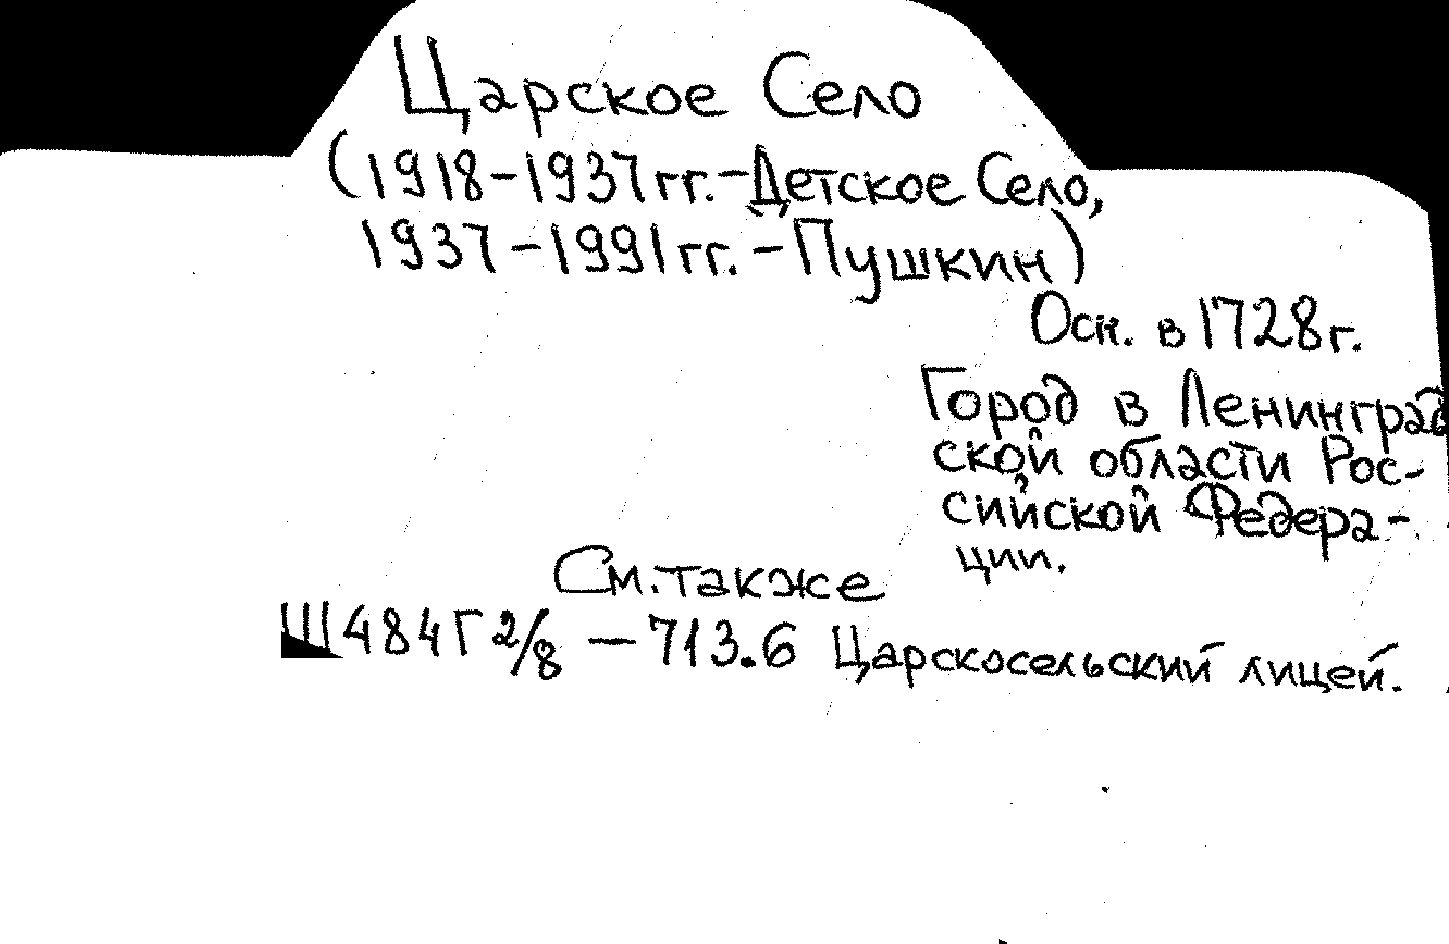 Царское Село
(1918-1937гг.-Детское Село,
1937-1991гг.-Пушкин)
Осн. в 1728г.
Город в Ленинград
ской области Рос-
сийской Федера-
ции.
См. также
Ш484Г2/8 — 713.6 Царскосельский лицей.